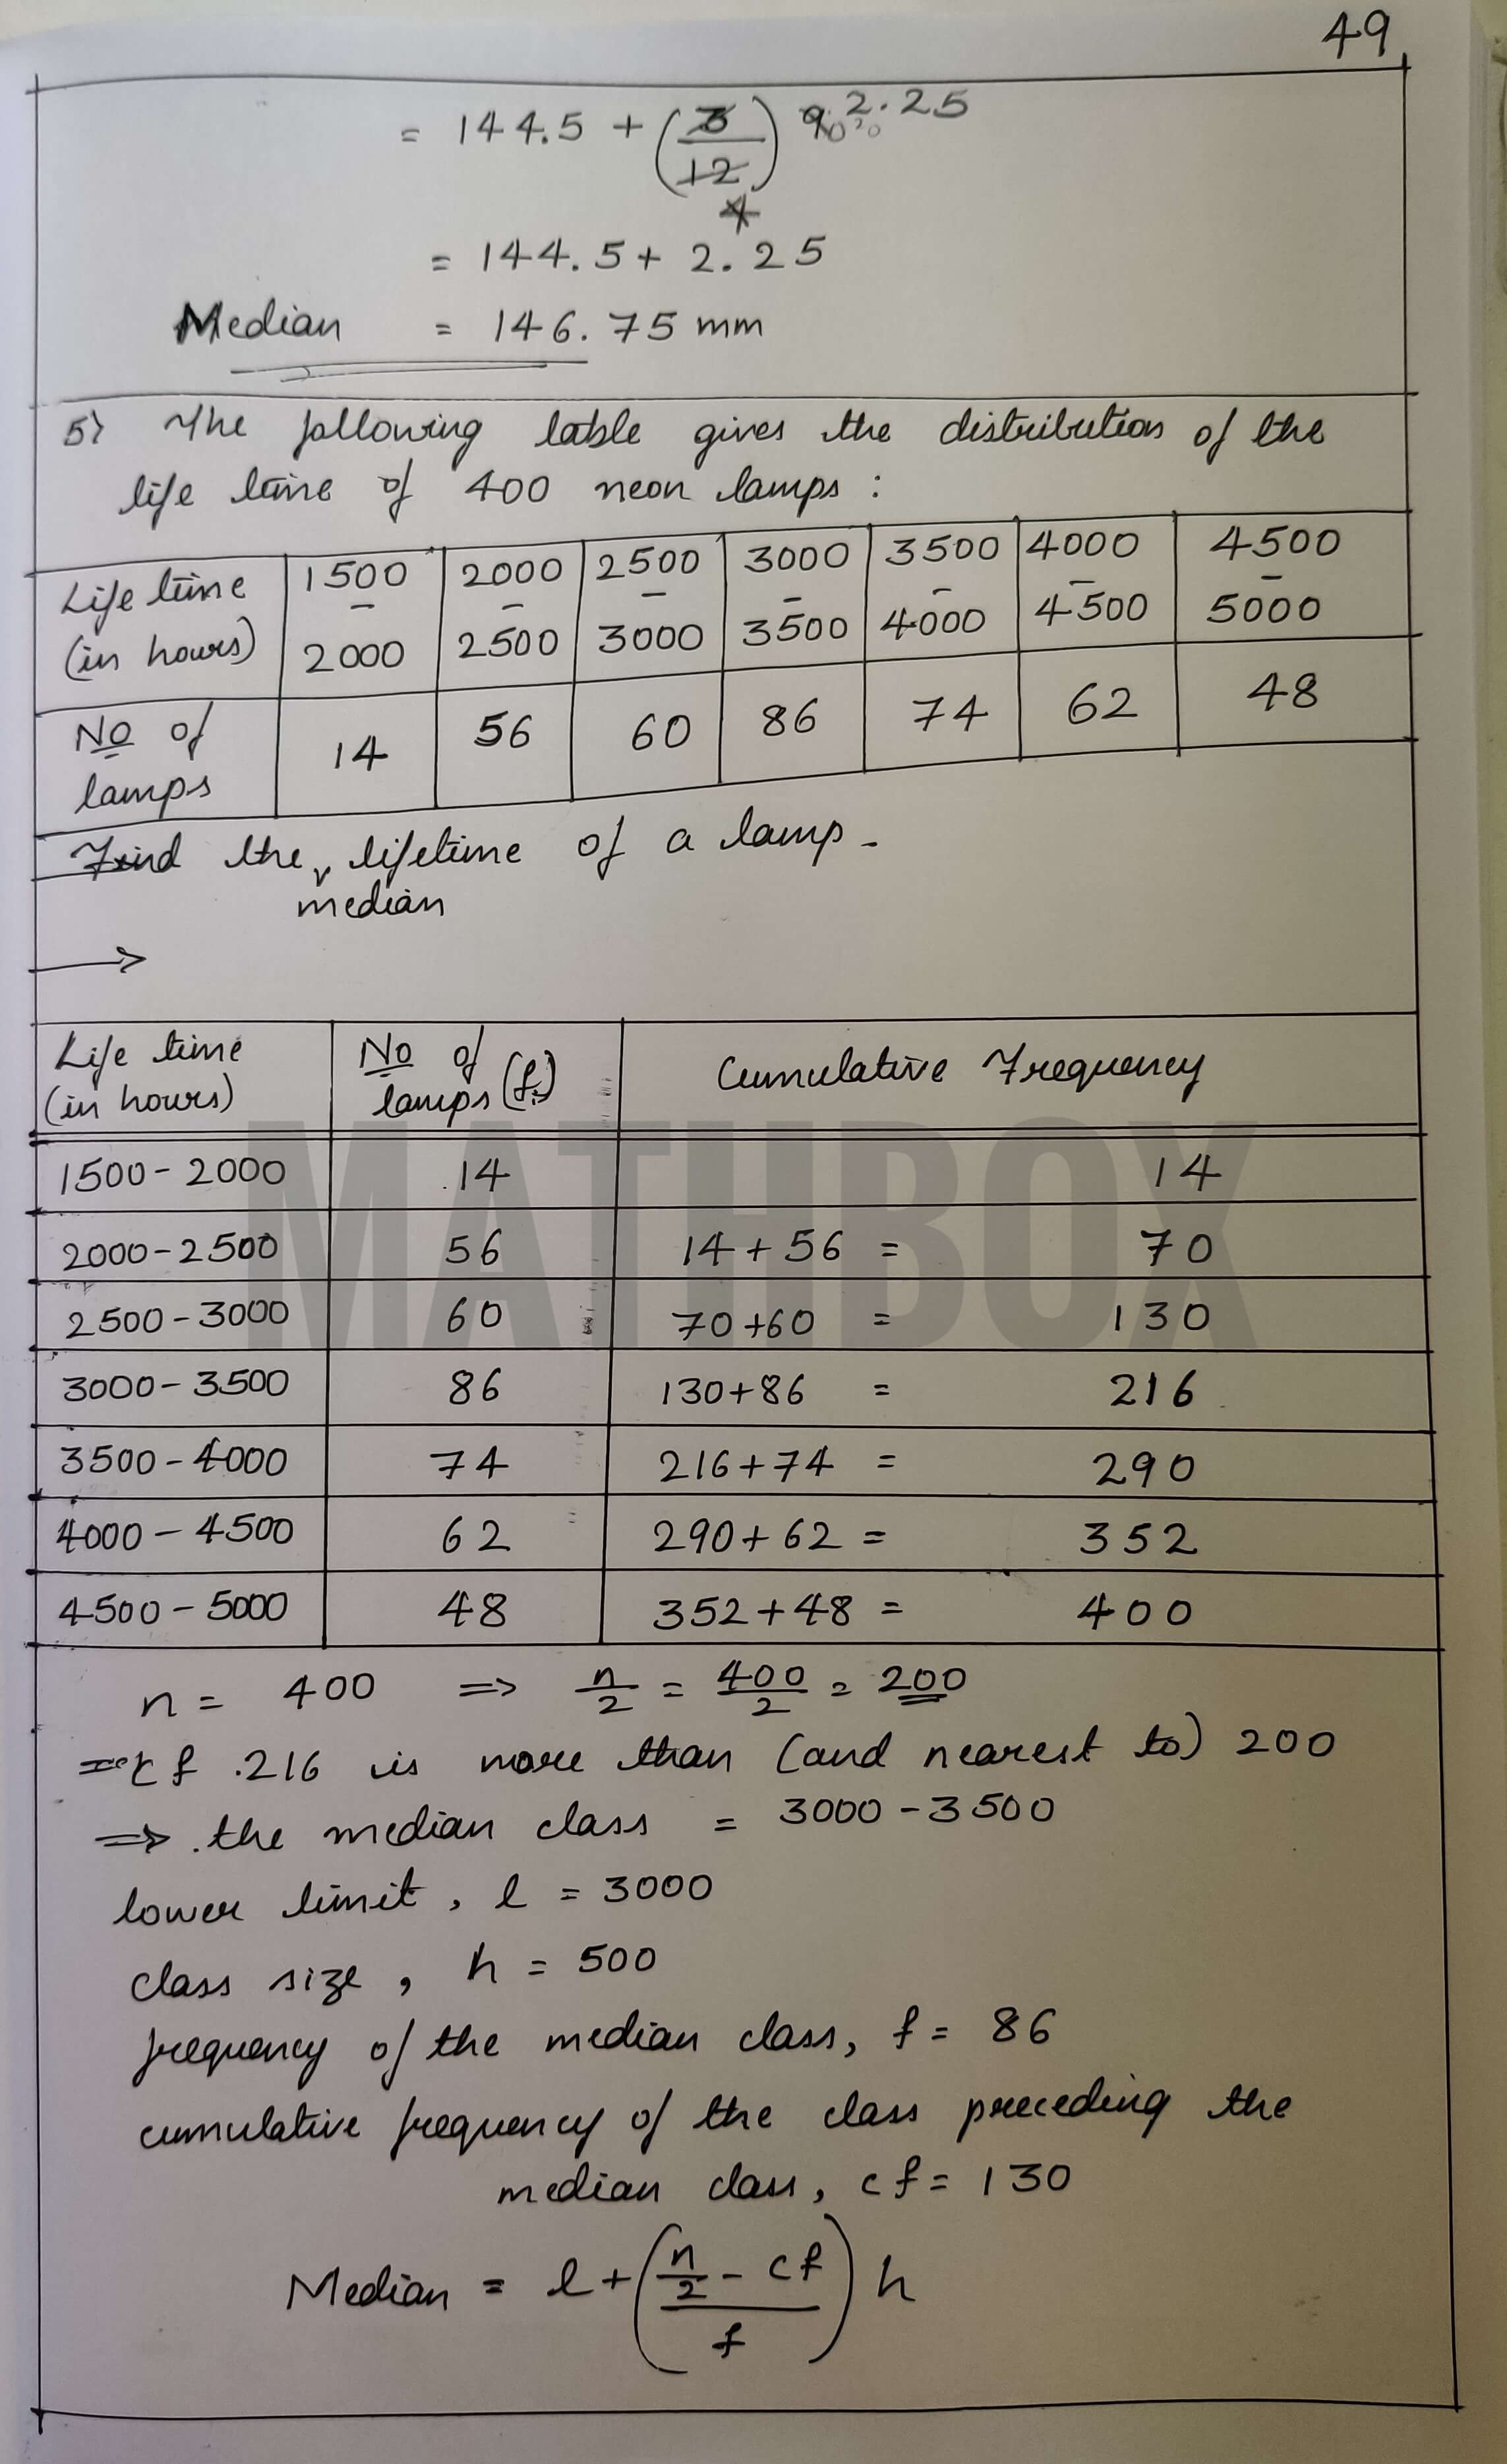 49
= 144.5 + (3/12) 9 2.25
4
= 144.5 + 2.25
Median = 146.75 mm
5> The following table gives the distribution of the
life time of 400 neon lamps :
Life time (in hours) 1500 – 2000 2000 – 2500 2500 – 3000 3000 – 3500 3500 – 4000 4000 – 4500 4500 – 5000
No of lamps 14 56 60 86 74 62 48
Find the median lifetime of a lamp.
→
Life time (in hours) No of lamps (fi) Cumulative Frequency
1500 - 2000 14 14
2000 - 2500 56 14 + 56 = 70
2500 - 3000 60 70 + 60 = 130
3000 - 3500 86 130 + 86 = 216
3500 - 4000 74 216 + 74 = 290
4000 - 4500 62 290 + 62 = 352
4500 - 5000 48 352 + 48 = 400
MATHBOX
n = 400 => n/2 = 400/2 = 200
=> cf 216 is more than (and nearest to) 200
=> the median class = 3000 - 3500
lower limit, l = 3000
class size, h = 500
frequency of the median class, f = 86
cumulative frequency of the class preceding the
median class, cf = 130
Median = l + ((n/2 - cf)/f) h